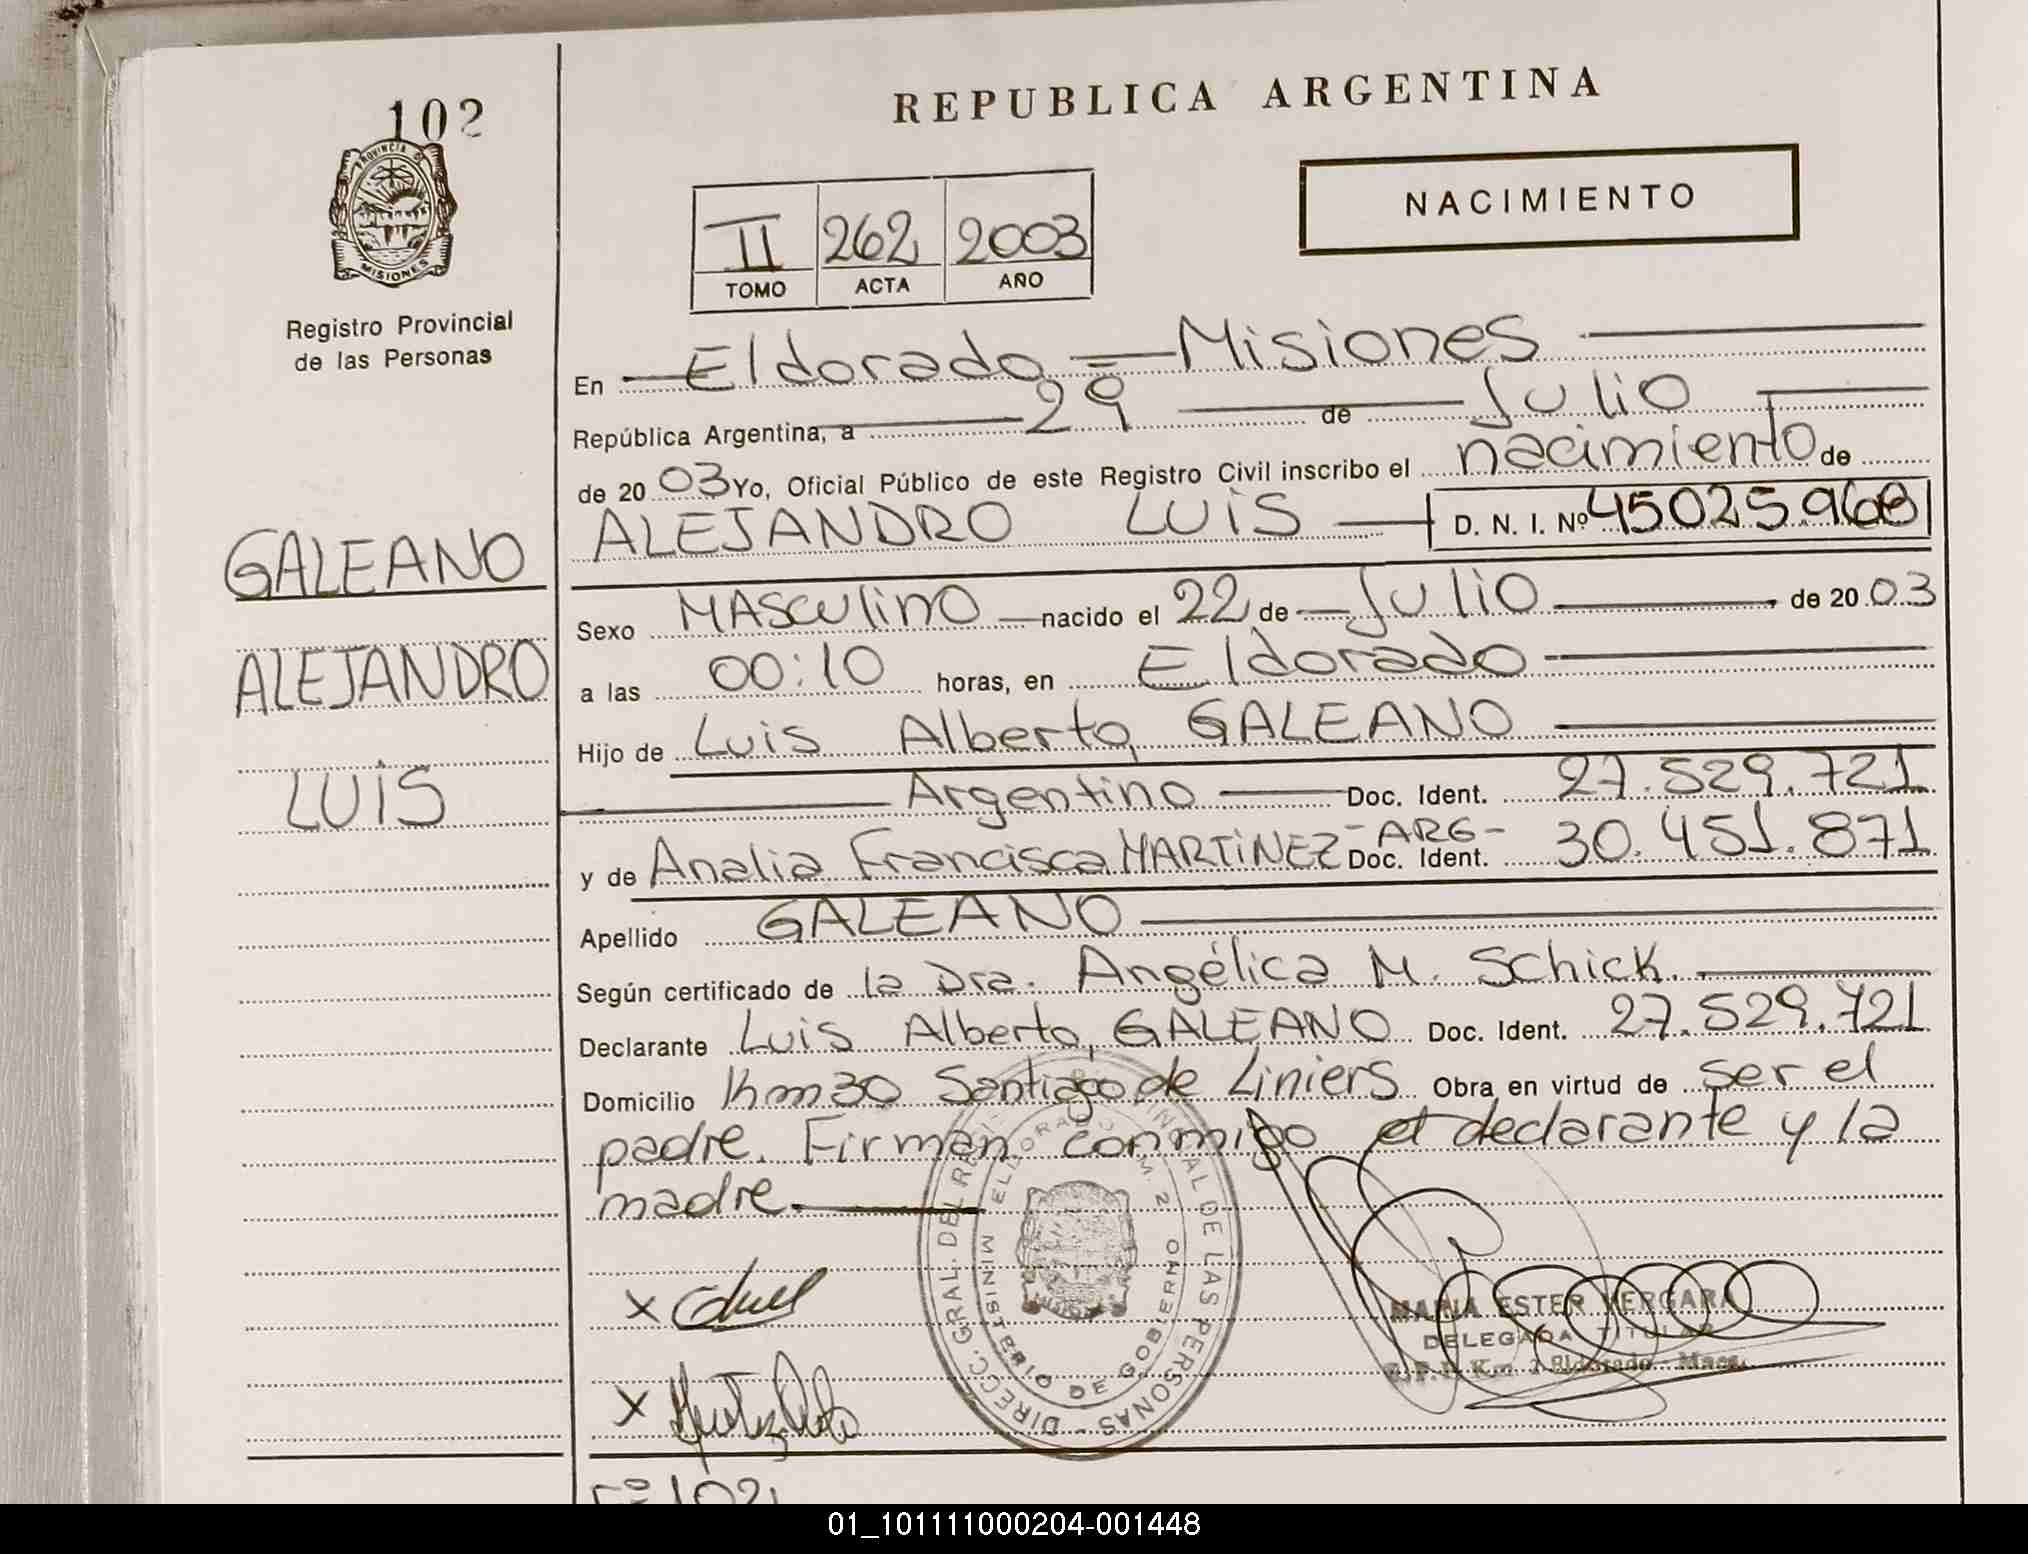 102
PROVINCIA DE
MISIONES
Registro Provincial
de las Personas
GALEANO
ALEJANDRO
LUIS
REPUBLICA ARGENTINA
NACIMIENTO
II 262 2003
TOMO ACTA AÑO
En Eldorado - Misiones
República Argentina, a 29 de Julio
de 2003 Yo, Oficial Público de este Registro Civil inscribo el nacimiento de
ALEJANDRO LUIS D. N. I. Nº 45025.968
Sexo MASCULINO nacido el 22 de Julio de 2003
a las 00:10 horas, en Eldorado
Hijo de Luis Alberto GALEANO
Argentino Doc. Ident. 27.529.721
y de Analia Francisca MARTINEZ -ARG- Doc. Ident. 30.451.871
Apellido GALEANO
Según certificado de la Dra. Angélica M. Schick.
Declarante Luis Alberto GALEANO Doc. Ident. 27.529.721
Domicilio Km 30 Santiago de Liniers Obra en virtud de ser el
padre. Firman conmigo el declarante y la
madre.
DIRECC. GRAL. DEL REG. PROVINCIAL DE LAS PERSONAS
MINISTERIO DE GOBIERNO
ELDORADO KM. 2
MARIA ESTER VERGARA
DELEGADA TITULAR
Km 2 Eldorado - Mnes.
Fº 102
01_101111000204-001448